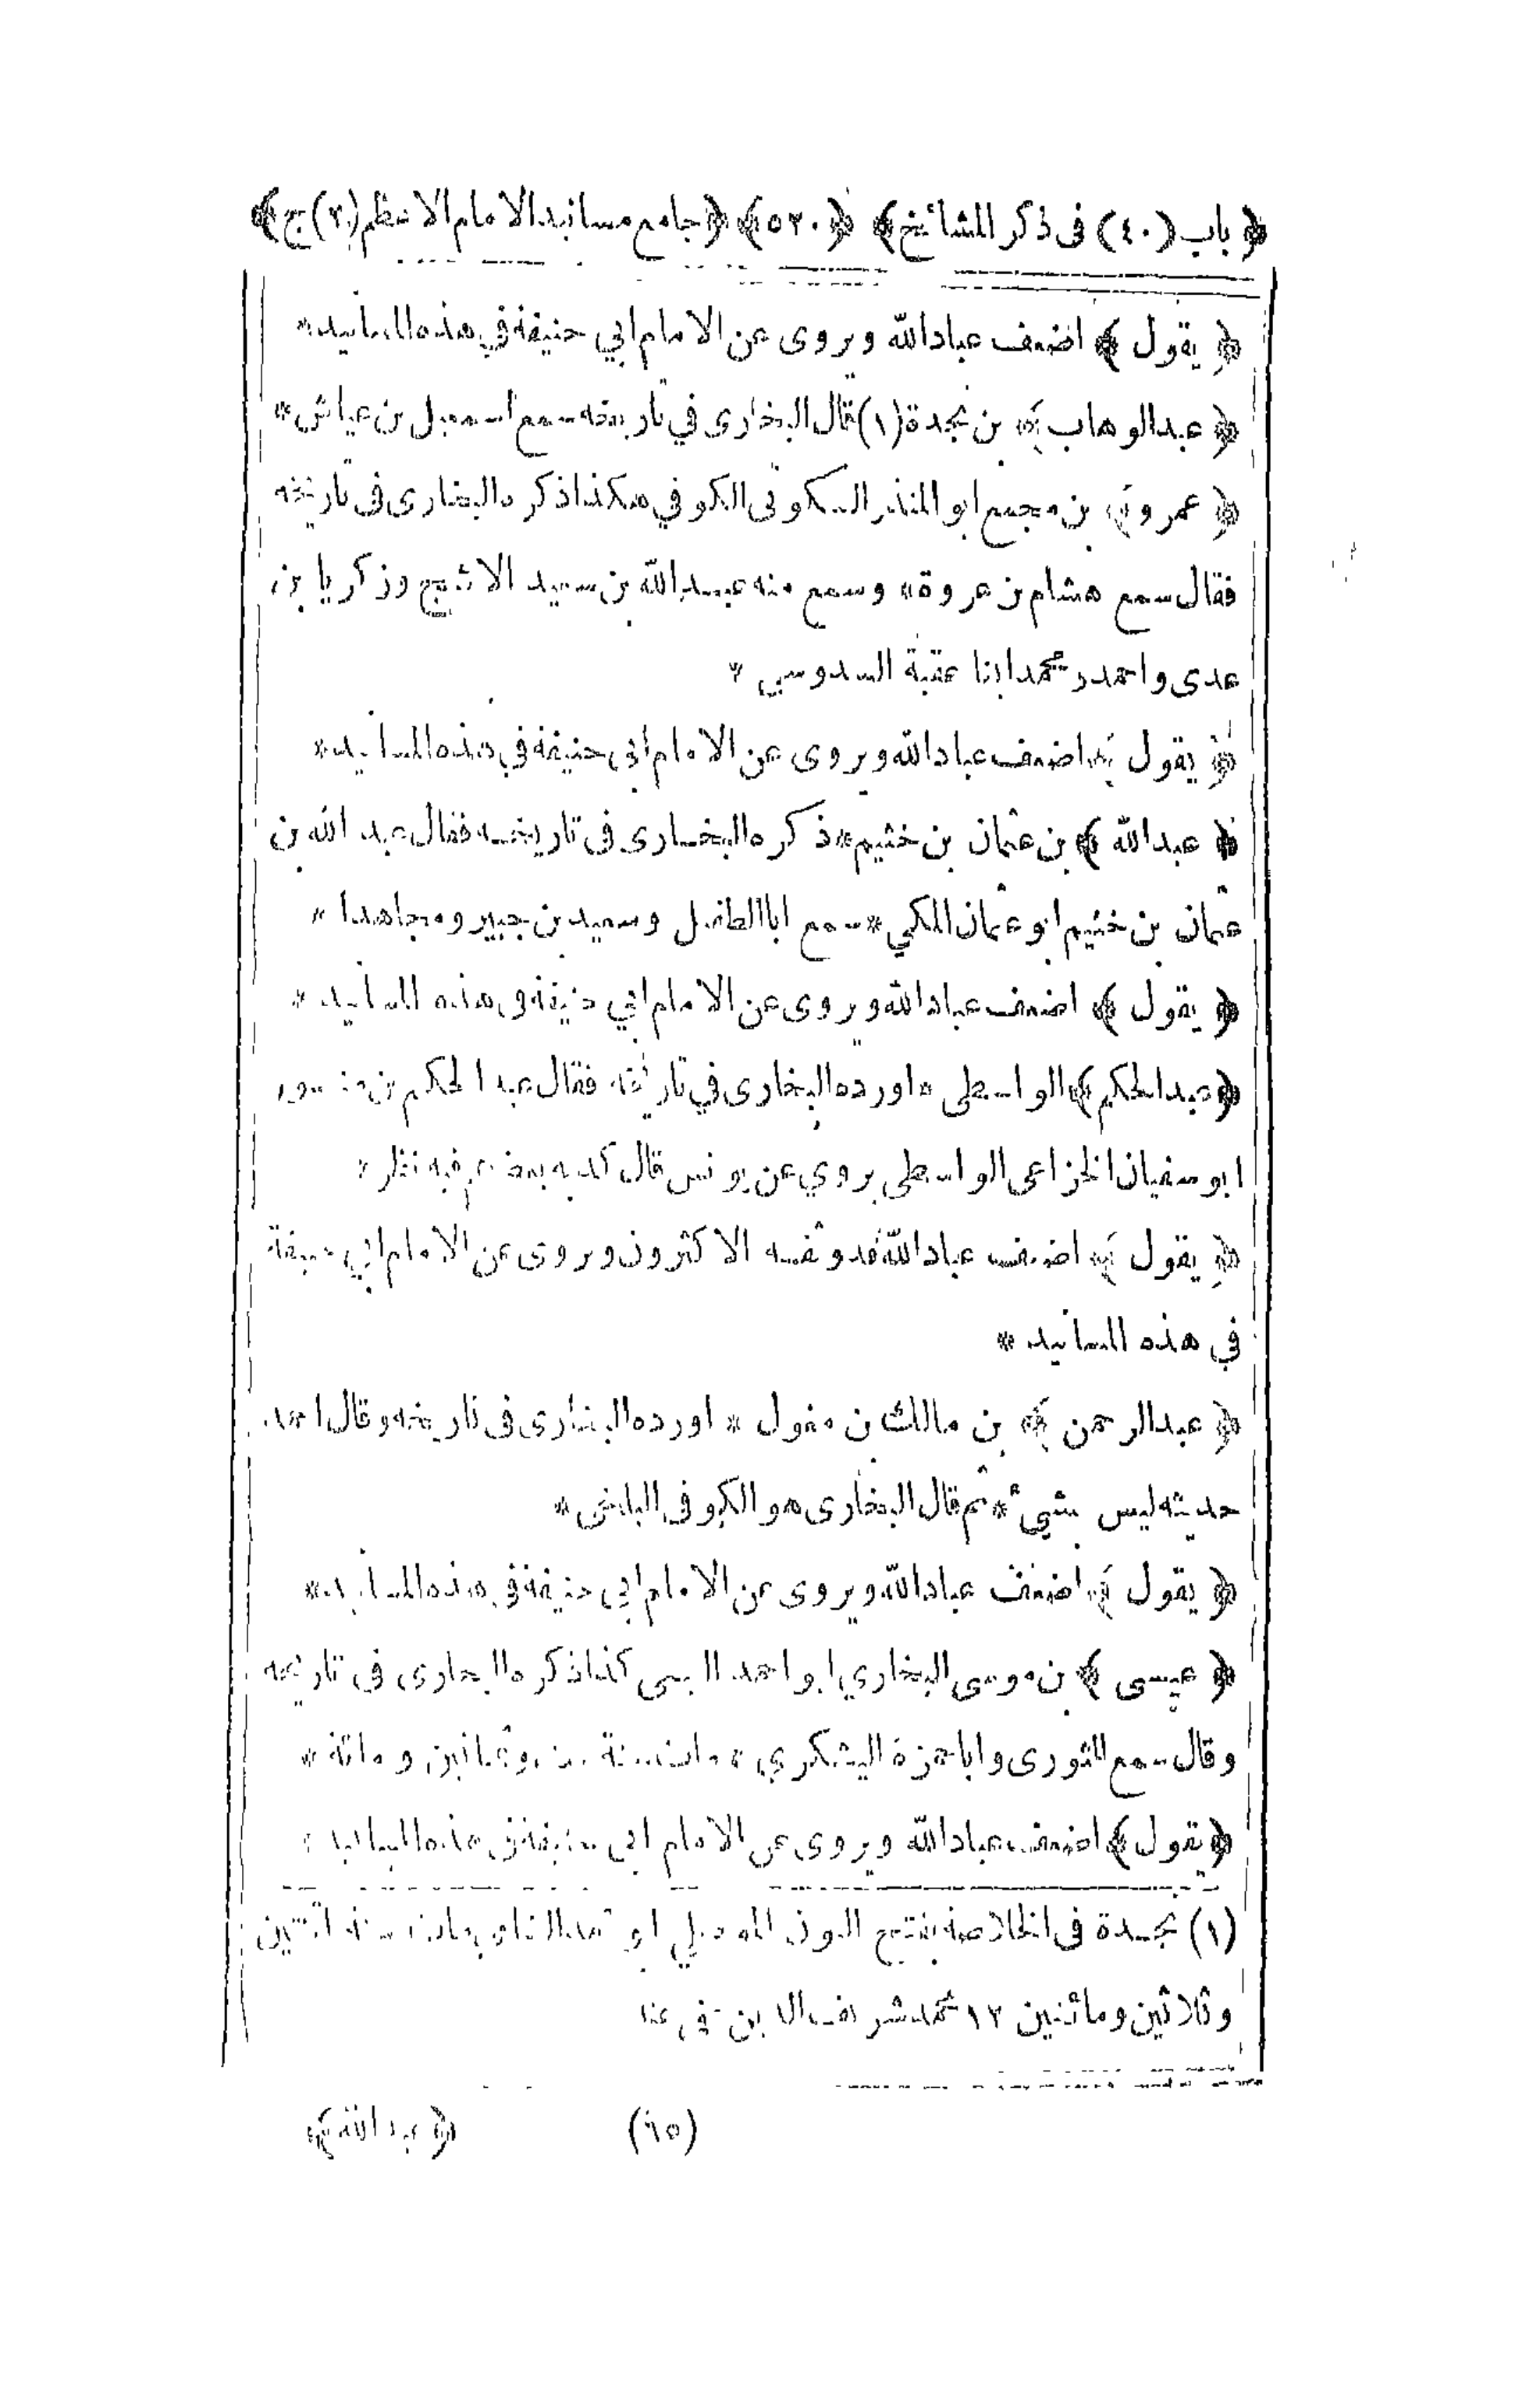 ﴿ باب (٤٠) فى ذكر المشائخ ﴾ ﴿٥٢٠﴾ ﴿ جامع مسانيد الامام الاعظم (٢) ج ﴾
﴿ يقول ﴾ اضعف عباد الله ويروى عن الامام ابي حنيفة في هذه المسانيد *
﴿ عبد الوهاب ﴾ بن نجدة (١) قال البخارى في تاريخه سمع اسمعيل بن عياش *
﴿ عمرو ﴾ بن مجمع ابو المنذر السكونى الكوفي هكذا ذكره البخارى فى تاريخه
فقال سمع هشام بن عروة * وسمع منه عبد الله بن سعيد الاشج وزكريا بن
عدى واحمد ومحمد ابنا عقبة السدوسي *
﴿ يقول ﴾ اضعف عباد الله ويروى عن الامام ابى حنيفة في هذه المسانيد *
﴿ عبد الله ﴾ بن عثمان بن خثيم * ذكره البخارى فى تاريخه فقال عبد الله بن
عثمان بن خثيم ابو عثمان المكي * سمع ابا الطفيل وسعيد بن جبير ومجاهدا *
﴿ يقول ﴾ اضعف عباد الله ويروى عن الامام ابي حنيفة فى هذه المسانيد *
﴿ عبد الحكيم ﴾ الواسطى * اورده البخارى في تاريخه فقال عبد الحكيم بن منصور
ابو سفيان الخزاعى الواسطى يروي عن يونس قال كذبه بعضهم فيه نظر *
﴿ يقول ﴾ اضعف عباد الله قد وثقه الاكثرون ويروى عن الامام ابي حنيفة
في هذه المسانيد *
﴿ عبد الرحمن ﴾ بن مالك بن مغول * اورده البخارى فى تاريخه وقال احمد
حديثه ليس بشيئ * ثم قال البخارى هو الكوفى البلخى *
﴿ يقول ﴾ اضعف عباد الله ويروى عن الامام ابي حنيفة في هذه المسانيد *
﴿ عيسى ﴾ بن موسى البخاري ابو احمد كذا ذكره البخارى فى تاريخه
وقال سمع الثورى وابا حمزة اليشكري * مات سنة وثمانين ومائة *
﴿ يقول ﴾ اضعف عباد الله ويروى عن الامام ابى حنيفة فى هذه المسانيد *
(١) نجدة فى الخلاصة بفتح النون ابو مات سنة اثنتين
وثلاثين ومائتين ١٢ محمد شريف الدين عفى عنه
(٦٥) ﴿ عبد الله ﴾